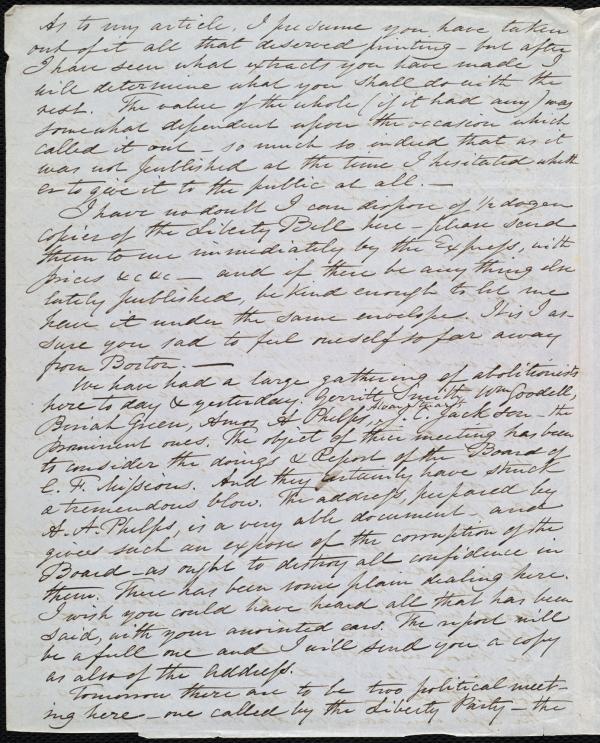 As to my article, I presume you have taken
out of it all that deserved printing - but after
I have seen what extracts you have made I
will determine what you shall do with the
rest. The value of the whole (if it had any) was
somewhat dependent upon the occasion which
called it out - so much so indeed that as it
was not published at the time I hesitated wheth
er to give it to the public at all. -
I have no doubt I can dispose of 1/2 dozen
copies of the Liberty Bell here - please send
them to me immediately by the Express, with
prices &c &c - and if there be any thing else
lately published, be kind enough to let me
have it under the same envelope. It is I as-
sure you sad to feel oneself so far away
from Boston. -
We have had a large gathering of abolitionists
here to day & yesterday, Gerritt Smith, Wm Goodell,
Beriah Green, Amos A Phelps, Alvan Stewart, J. C. Jackson - the
prominent ones. The object of their meeting has been
to consider the doings & Report of the Board of
C. F. Missions. And they certainly have struck
a tremendous blow. The address, prepared by
A. A. Phelps, is a very able document - and
gives such an expose of the corruption of the
Board - as ought to destroy all confidence in
them. There has been some plain dealing here.
I wish you could have heard all that has been
said, with your anointed ears. The report will
be a full one and I will send you a copy
as also of the address.
Tomorrow there are to be two political meet-
ing here - one called by the Liberty Party - the